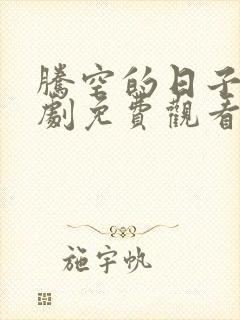 騰空的日子
劇免費觀看
施宇帆